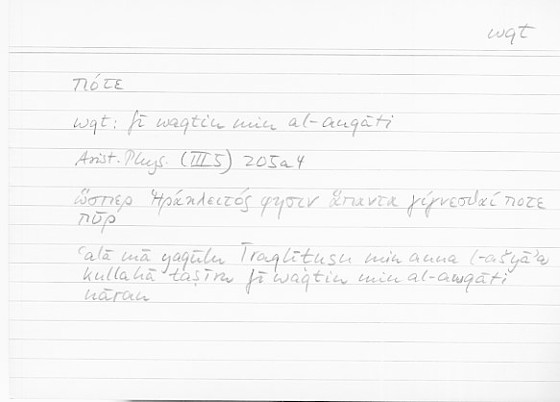 wqt
πότε
wqt: fī waqtin min al-auqāti
Arist. Phys. (III 5) 205a4
ὥσπερ Ἡράκλειτός φησιν ἅπαντα γίγνεσθαί ποτε
πῦρ
ʿalā mā yaqūlu Īraqlīṭusu min anna l-ašyāʾa
kullahā taṣīru fī waqtin min al-auqāti
nāran